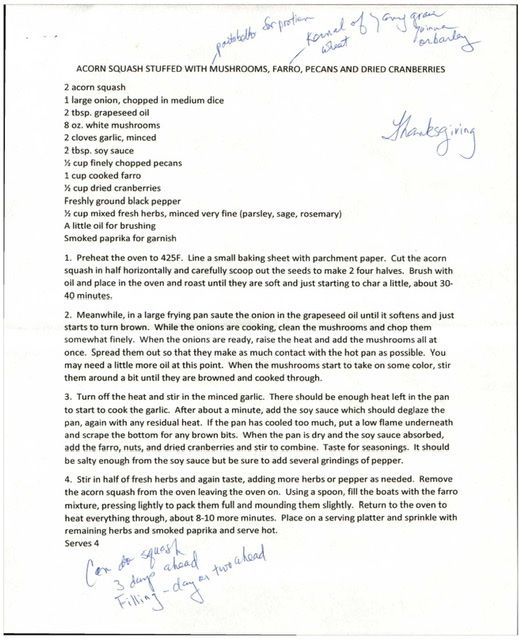 portobello for protein
Kernel of wheat
any grain
quinoa
or barley
ACORN SQUASH STUFFED WITH MUSHROOMS, FARRO, PECANS AND DRIED CRANBERRIES
2 acorn squash
1 large onion, chopped in medium dice
2 tbsp. grapeseed oil
8 oz. white mushrooms
2 cloves garlic, minced
2 tbsp. soy sauce
½ cup finely chopped pecans
1 cup cooked farro
½ cup dried cranberries
Freshly ground black pepper
½ cup mixed fresh herbs, minced very fine (parsley, sage, rosemary)
A little oil for brushing
Smoked paprika for garnish
Thanksgiving
1. Preheat the oven to 425F. Line a small baking sheet with parchment paper. Cut the acorn
squash in half horizontally and carefully scoop out the seeds to make 2 four halves. Brush with
oil and place in the oven and roast until they are soft and just starting to char a little, about 30-
40 minutes.
2. Meanwhile, in a large frying pan saute the onion in the grapeseed oil until it softens and just
starts to turn brown. While the onions are cooking, clean the mushrooms and chop them
somewhat finely. When the onions are ready, raise the heat and add the mushrooms all at
once. Spread them out so that they make as much contact with the hot pan as possible. You
may need a little more oil at this point. When the mushrooms start to take on some color, stir
them around a bit until they are browned and cooked through.
3. Turn off the heat and stir in the minced garlic. There should be enough heat left in the pan
to start to cook the garlic. After about a minute, add the soy sauce which should deglaze the
pan, again with any residual heat. If the pan has cooled too much, put a low flame underneath
and scrape the bottom for any brown bits. When the pan is dry and the soy sauce absorbed,
add the farro, nuts, and dried cranberries and stir to combine. Taste for seasonings. It should
be salty enough from the soy sauce but be sure to add several grindings of pepper.
4. Stir in half of fresh herbs and again taste, adding more herbs or pepper as needed. Remove
the acorn squash from the oven leaving the oven on. Using a spoon, fill the boats with the farro
mixture, pressing lightly to pack them full and mounding them slightly. Return to the oven to
heat everything through, about 8-10 more minutes. Place on a serving platter and sprinkle with
remaining herbs and smoked paprika and serve hot.
Serves 4
Can do squash
3 days ahead
Filling - day or two ahead